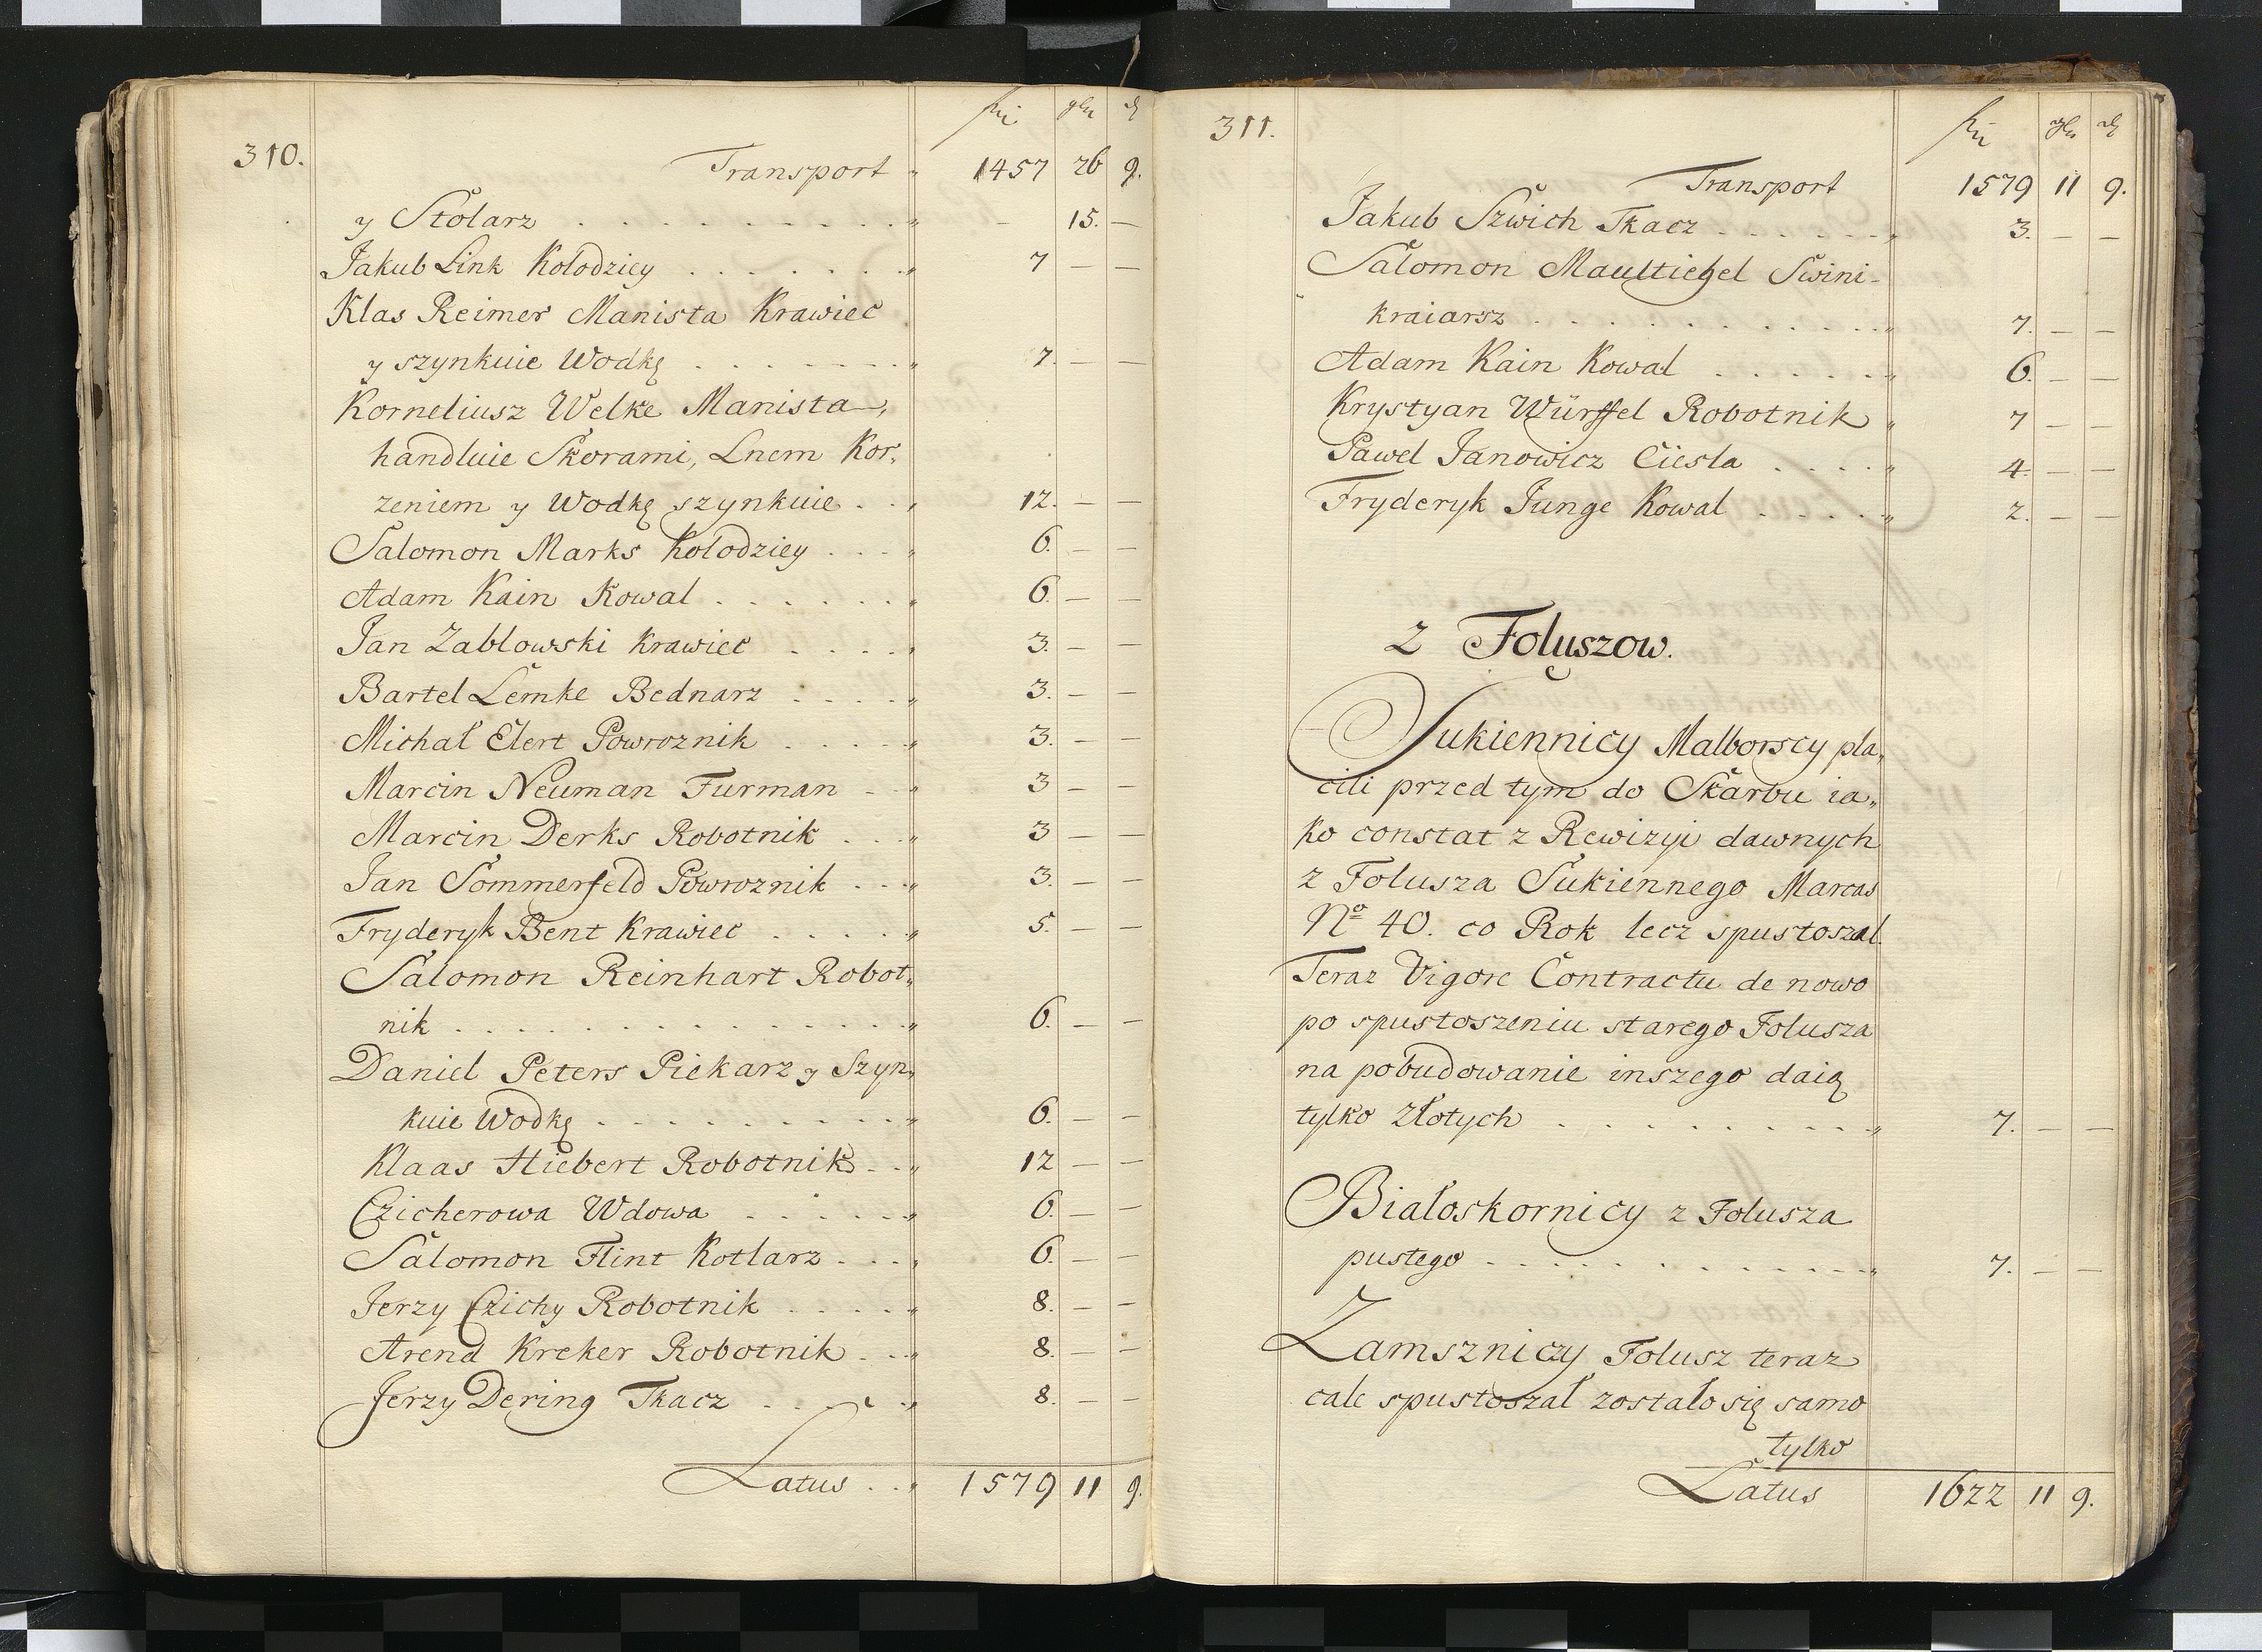 310.
fl. gr. d
Transport " 1457 26 9.
y Stolarz . . . . . . . . . " - 15. —
Jakub Link Kołodziey . . . . . . . " 7 — —
Klas Reimer Manista Krawiec
y szynkuie Wodkę . . . . . . . " 7. — —
Korneliusz Welke Manista,
handluie Skorami, Lnem Kor„
zeniem y Wodkę szynkuie . . „ 12. — —
Salomon Marks Kołodziey . . . " 6. — —
Adam Kain Kowal . . . . . . " 6. — —
Jan Zabłowski Krawiec . . . . " 3. — —
Bartel Lemke Bednarz . . . . " 3. — —
Michał Elert Powroznik . . . . . " 3. — —
Marcin Neuman Furman . . " 3 — —
Marcin Derks Robotnik . . . " 3 — —
Jan Sommerfeld Powroznik . . . " 3. — —
Fryderyk Bent Krawiec . . . . . " 5. — —
Salomon Reinhart Robot„
nik . . . . . . . . . . . . " 6. — —
Daniel Peters Piekarz y Szyn„
kuie Wodkę . . . . . . . . . " 6. — —
Klaas Hiebert Robotnik . . " 12 — —
Czicherowa Wdowa . . . . . . " 6. — —
Salomon Flint Kotlarz . . . . " 6. — —
Jerzy Czichy Robotnik . . . . . " 8. — —
Arend Kreker Robotnik . . . " 8. — —
Jerzy Dering Tkacz . . . . . " 8. — —
Latus . . " 1579 11 9.
311.
Transport 1579 11 9.
Jakub Szwich Tkacz . . . . . . " 3. — —
Salomon Maultiegel Swini-
kraiarsz . . . . . . . . . . . " 7. — —
Adam Kain Kowal . . . . . . " 6. — —
Krystyan Würffel Robotnik " 7 — —
Paweł Janowicz Ciesla . . . . " 4. — —
Fryderyk Junge Kowal . . . . . " 2. — —
z Foluszow.
Sukiennicy Malborscy pła„
cili przed tym do Skarbu ia„
ko constat z Rewizyi dawnych
z Folusza Sukiennego Marcas
Nº 40. co Rok lecz spustoszał.
Teraz Vigore Contractu de nowo
po spustoszeniu starego Folusza
na pobudowanie inszego daią
tylko złotych . . . . . . . . . . " 7. — —
Białoskornicy z Folusza
pustego . . . . . . . . . . . . " 7. — —
Zamsznicy Folusz teraz
cale spustoszał zostało się samo
tylko
Latus 1622 11 9.